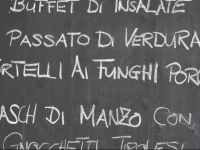 BUFFET DI INSALATE
PASSATO DI VERDURA
RTELLI AI FUNGHI PORC
ASCH DI MANZO CON
GNOCCHETTI TIROLESI